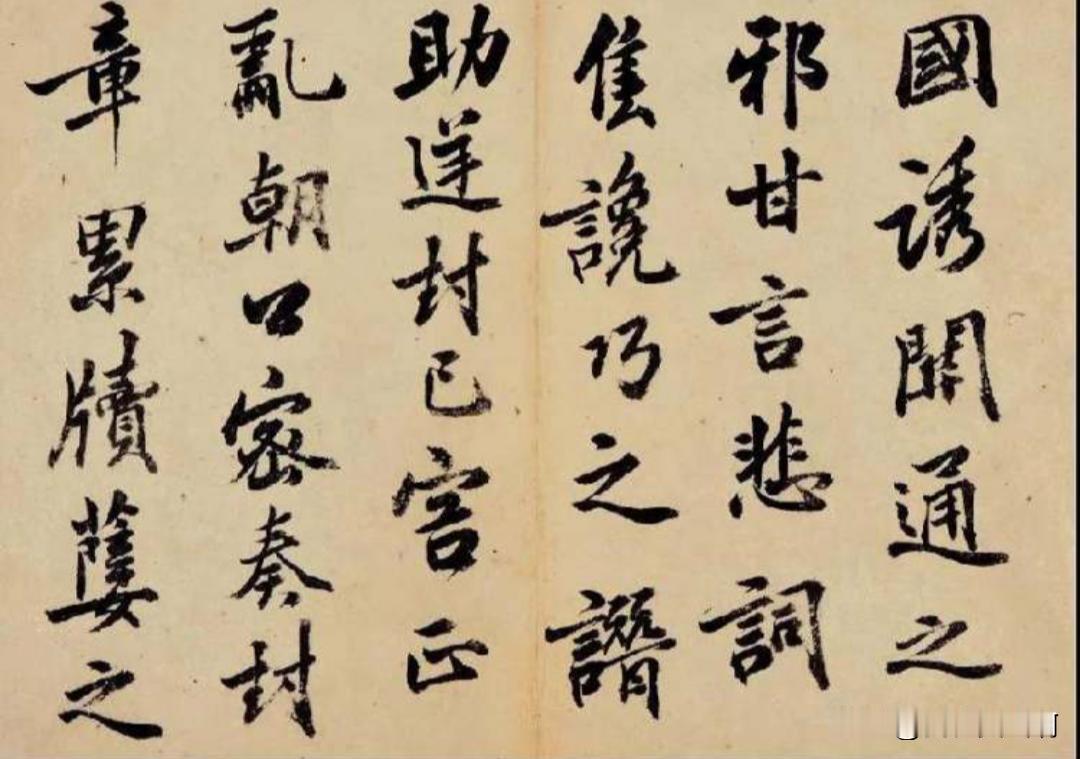 國誘關通之
邪甘言悲詞
讒巧之譖
助逆封已害正
亂朝口密奏封
章累牘之